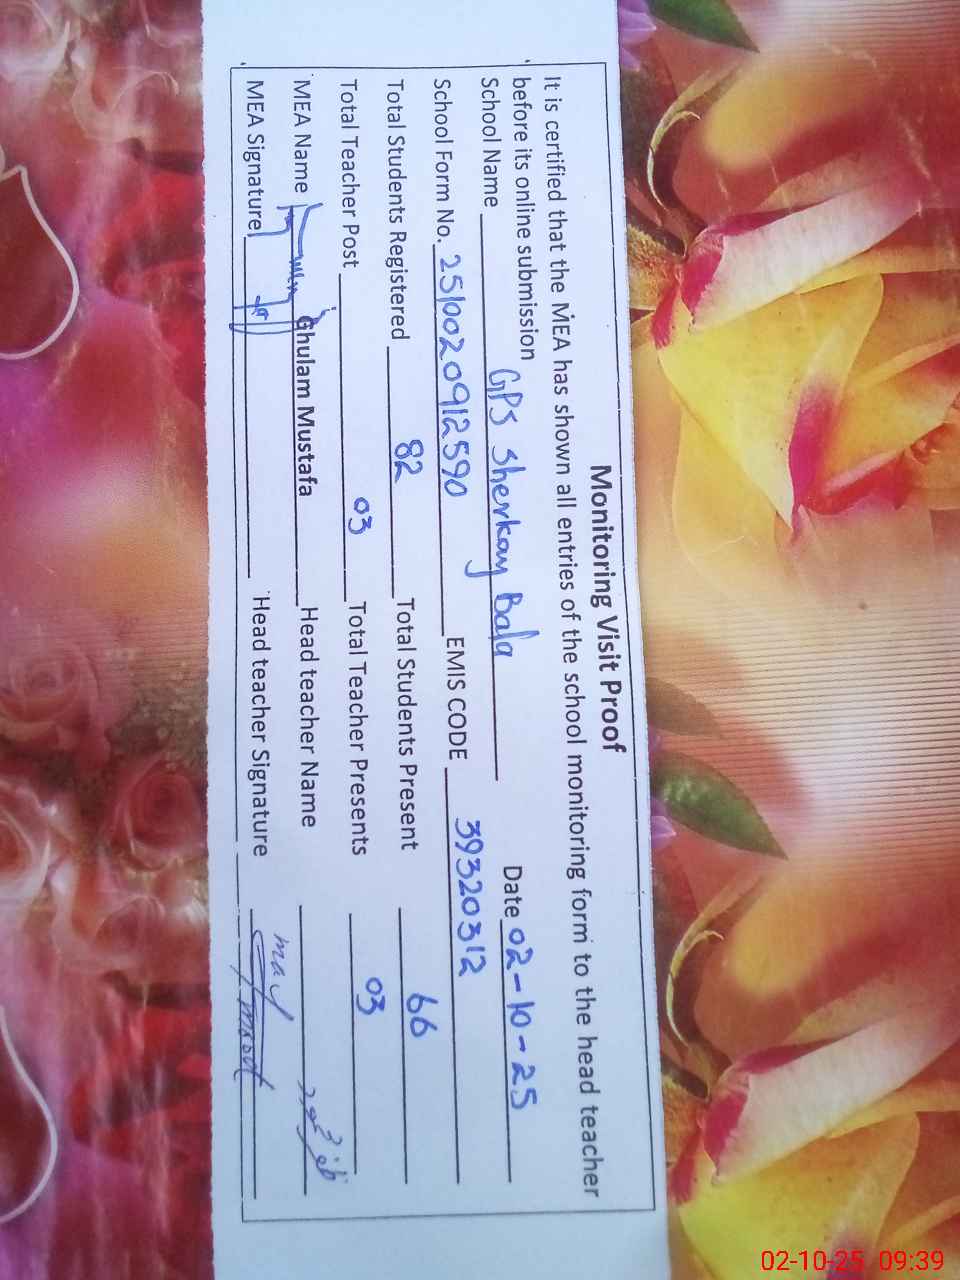 Monitoring Visit Proof
It is certified that the MEA has shown all entries of the school monitoring form to the head teacher
before its online submission
School Name GPS Sherkay Bala Date 02-10-25
School Form No. 2510020912590 EMIS CODE 39320312
Total Students Registered 82 Total Students Present 66
Total Teacher Post 03 Total Teacher Presents 03
MEA Name Ghulam Mustafa Head teacher Name
MEA Signature Head teacher Signature
02-10-25 09:39